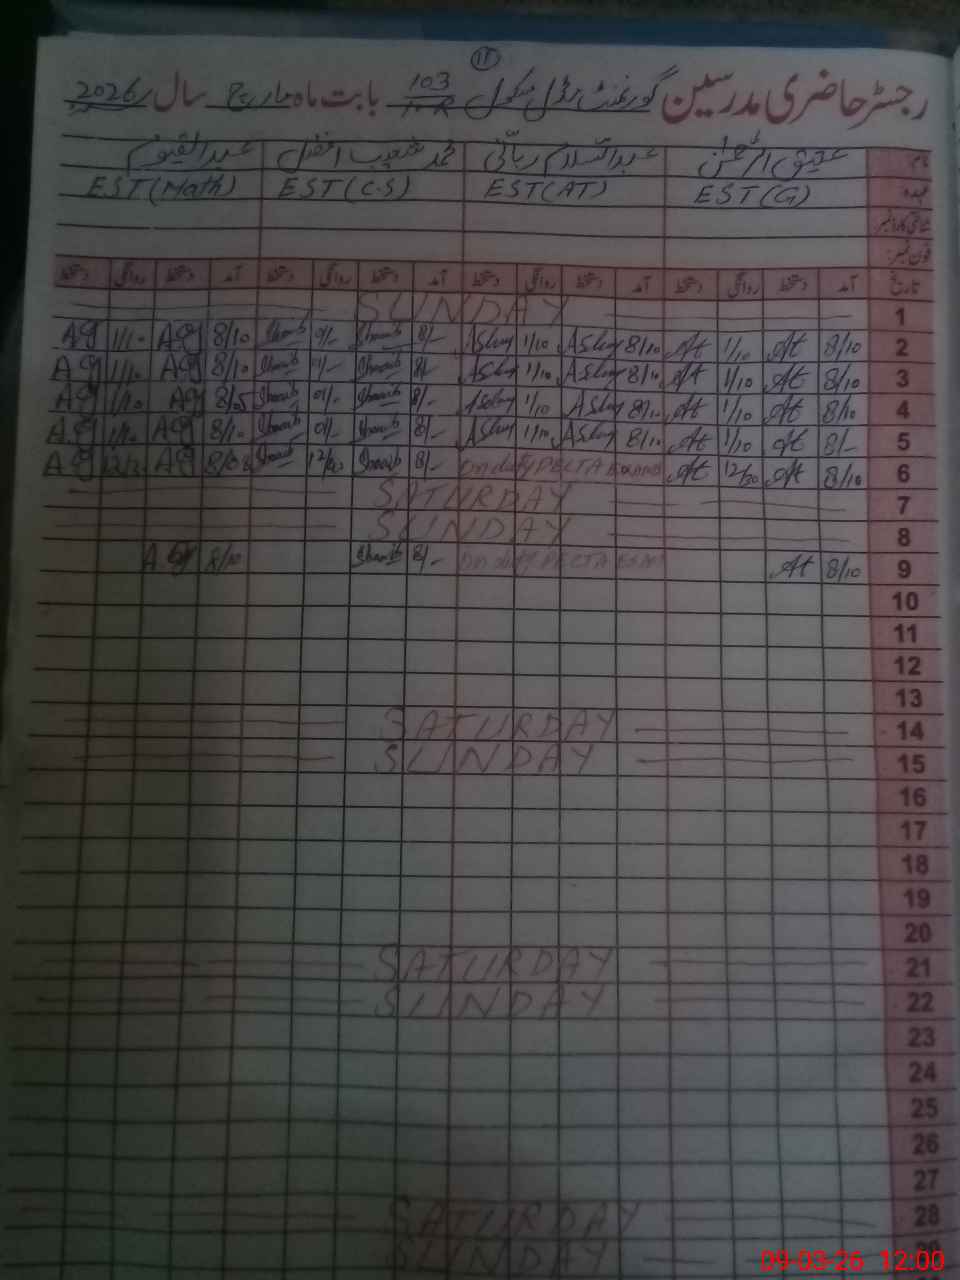 ۱۲
رجسٹر حاضری مدرسین گورنمنٹ مڈل سکول 103 بابت ماہ مارچ سال 2026
نام عتیق الرحمٰن عبدالسلام ربانی محمد شعیب افضل عبدالقیوم
عہدہ EST(G) EST(AT) EST(C.S) EST(Math)
شناختی کارڈ نمبر
فون نمبر:
تاریخ آمد دستخط روانگی دستخط آمد دستخط روانگی دستخط آمد دستخط روانگی دستخط آمد دستخط روانگی دستخط
1 SUNDAY
2 8/10 At 1/10 At 8/10 1/10 8/- Shoaib Shoaib 8/10 Ag Ag
3 8/10 At 1/10 8/10 1/10 8/- Shoaib Shoaib 8/10 Ag Ag
4 8/10 At 1/10 At 1/10 8/- Shoaib Shoaib 8/05 Ag Ag
5 8/- At 1/10 At 8/10 1/10 8/- Shoaib Shoaib Ag Ag
6 8/10 At 12/30 At On duty PECTA 8/- Shoaib Ag Ag
7 SATURDAY
8 SUNDAY
9 8/10 At On duty PECTA 8/- Shoaib 8/10 Ag
10
11
12
13
14 SATURDAY
15 SUNDAY
16
17
18
19
20
21 SATURDAY
22 SUNDAY
23
24
25
26
27
28 SATURDAY
29 SUNDAY
09-03-26 12:00